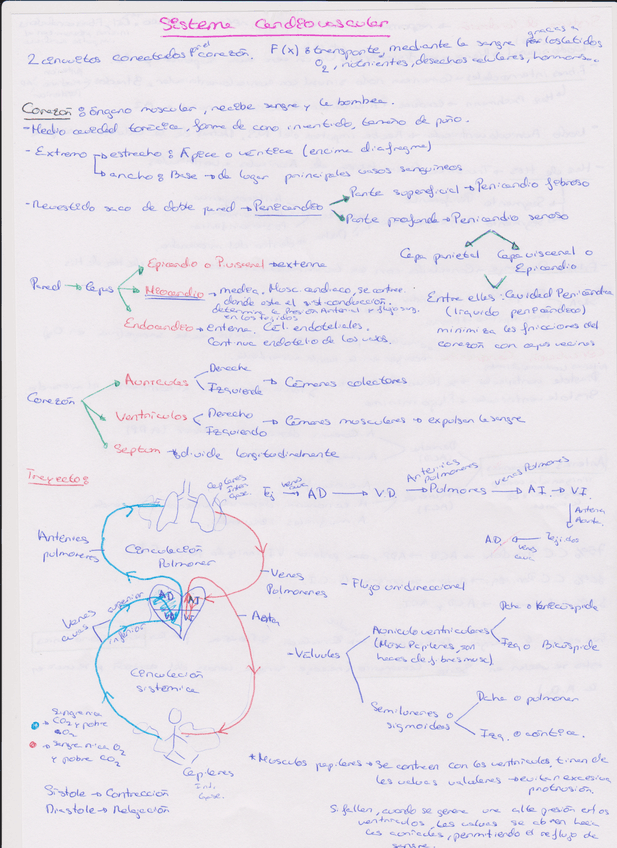 Sistema Cardiovascular
2 circuitos conectados por el corazón. F(x): transporte, mediante la sangre por los latidos
gracias a
O2, nutrientes, desechos celulares, hormonas...
Corazón: órgano muscular, recibe sangre y la bombea.
- Medio cavidad torácica, forma de cono invertido, tamaño de puño.
- Extremo → estrecho: Ápice o vértice (encima diafragma)
→ ancho: Base → da lugar principales vasos sanguíneos
Parte superficial → Pericardio fibroso
- Revestido saco de doble pared → Pericardio
Parte profunda → Pericardio seroso
Capa parietal Capa visceral o
Epicardio
Epicardio o P. visceral → externa
Pared → Capas → Miocardio → media. Musc. cardiaco, se contrae.
donde está el sist. conducción.
determina la Presión Arterial y flujo sang.
en los tejidos
Endocardio → interna. Cél. endoteliales.
Continua endotelio de los vasos.
Entre ellas: Cavidad Pericárdica
(líquido pericárdico)
minimiza las fricciones del
corazón con capas vecinas
Derecha
Aurículas
Izquierda → Cámaras colectoras
Corazón
Ventrículos Derecho
Izquierdo → Cámaras musculares → expulsan la sangre
Septum → divide longitudinalmente
Trayecto:
capilares
Tej. → vena cava → AD → V.D. → Arterias pulmonares → Pulmones → venas Pulmonares → A.I. → V.I.
Arteria
Aorta
AD ← venas cava ← Tejidos
Arterias
pulmonares
Circulación
Pulmonar
Venas
Pulmonares
AD AI
VD VI
Venas
cavas
superior
inferior
Aorta
Circulación
sistémica
- Flujo unidireccional
Dcha o Tricúspide
Auriculoventriculares
(Musc Papilares, son
haces de fibras musc)
Izq o Bicúspide
- Válvulas
Semilunares o
sigmoideas
Dcha o pulmonar
Izq. o aórtica.
→ Sangre rica
CO2 y pobre
O2
→ Sangre rica O2
y pobre CO2
Capilares
Sístole → Contracción
Diástole → Relajación
* Músculos papilares → se contraen con los ventrículos, tiran de
las valvas valvulares → evitan excesiva
protrusión.
Si fallan, cuando se genera una alta presión en los
ventrículos, las valvas se abren hacia
las aurículas, permitiendo el reflujo de
sangre.